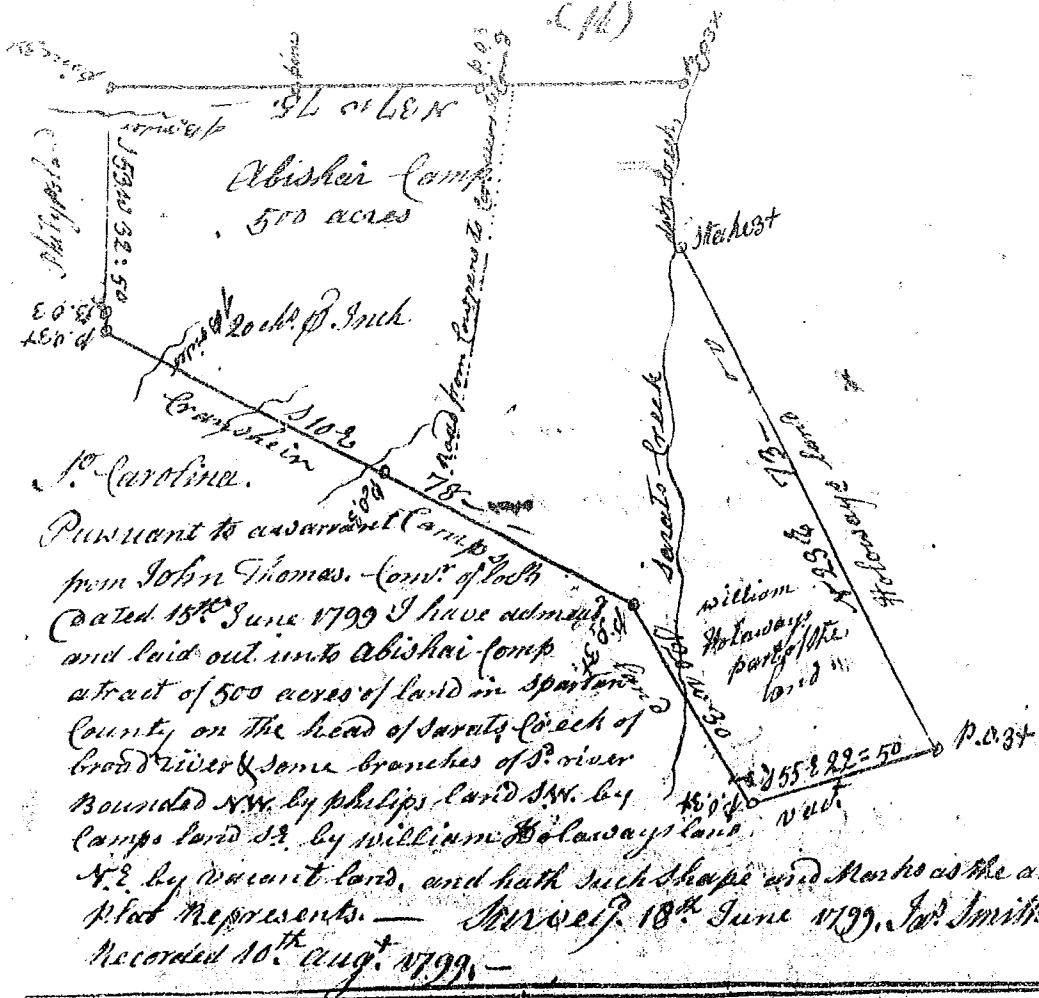 N 37 W 75
Abishai Camp
500 acres
Philyps land
S 53 W 32=50
20 chs. P Inch
S 10 E
78
Road from Cowpens to
down creek
Stake 3x
Sarats Creek
N 23 E 73
Holoways land
William
Holaways
part of the
land
P.O. 3x
S 55 E 22=50
vact.
So. Carolina.
Pursuant to a warrant
from John Thomas. Comr. of locts
Dated 15th June 1799 I have admeasd
and laid out unto Abishai Camp
a tract of 500 acres of land in Spartan
County on the head of Sarats Creek of
broad river & some branches of sd. river
Bounded NW. by philips land SW. by
Camps land SE. by William Holaways land
N.E. by vacant land, and hath such shape and Marks as the a
Plat Represents. — Survey'd. 18th June 1799. Jas. Smith
Recorded 10th Augt. 1799.—